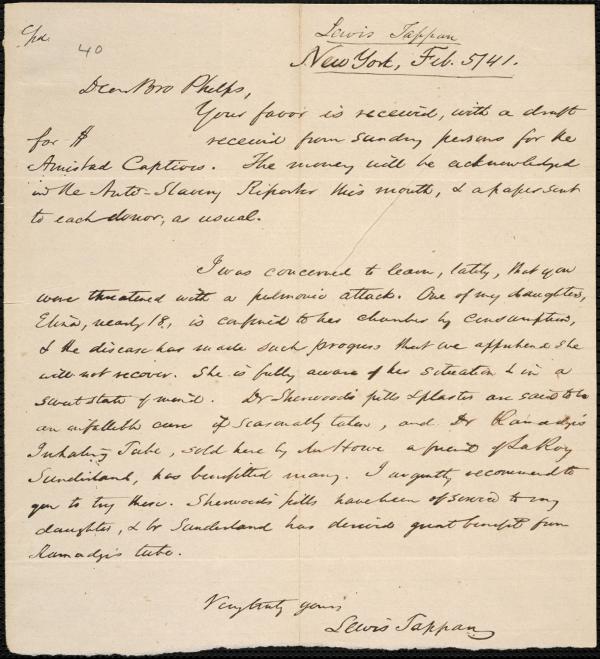 Cpd.
40
Lewis Tappan
New York, Feb. 5/41.
Dear Bro Phelps,
Your favor is received, with a draft
for $ received from sundry persons for the
Amistad Captives. The money will be acknowledged
in the Anti-Slavery Reporter this month, & a paper sent
to each donor, as usual.
I was concerned to learn, lately, that you
were threatened with a pulmonic attack. One of my daughters,
Eliza, nearly 18, is confined to her chamber by consumption,
& the disease has made such progress that we apprehend she
will not recover. She is fully aware of her situation & in a
sweet state of mind. Dr Sherwood's pills & plaster are said to be
an infallible cure if seasonably taken, and Dr Ramadge's
Inhaling Tube, sold here by Mr Howe a friend of LaRoy
Sunderland, has benefitted many. I urgently recommend to
you to try these. Sherwood's pills have been of service to my
daughter, & br Sunderland has derived great benefit from
Ramadge's tube.
Very truly yours
Lewis Tappan